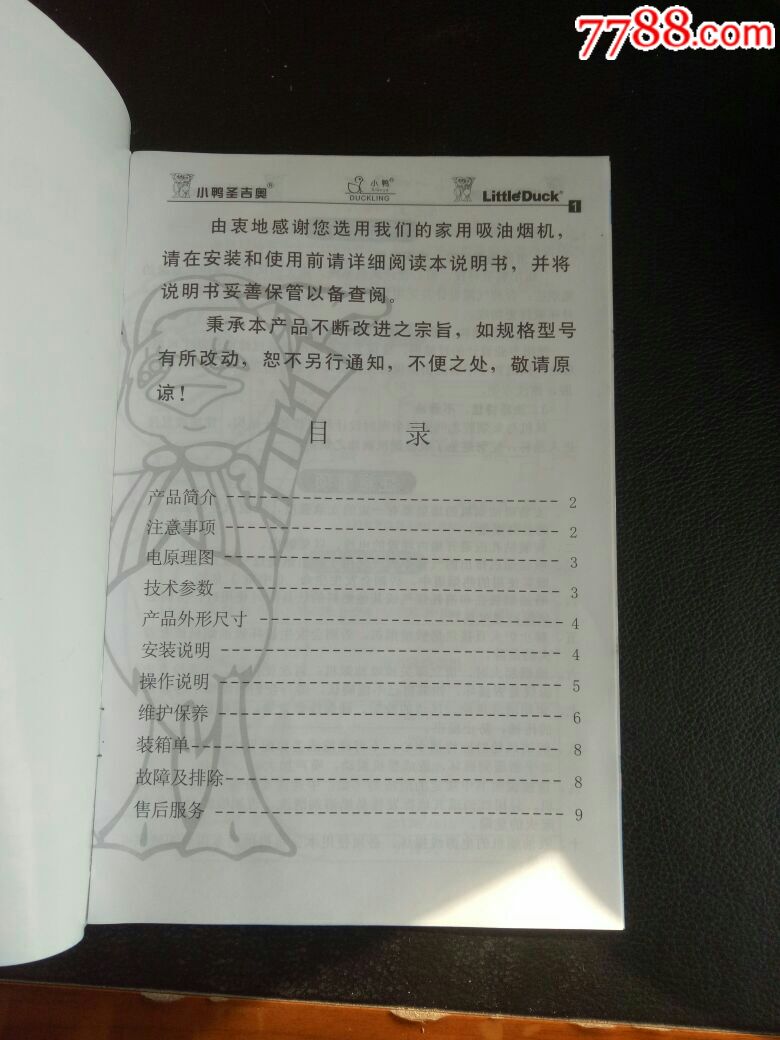 7788.com
小鸭圣吉奥®
小鸭®
DUCKLING
LittleDuck®
1
由衷地感谢您选用我们的家用吸油烟机，
请在安装和使用前请详细阅读本说明书，并将
说明书妥善保管以备查阅。
秉承本产品不断改进之宗旨，如规格型号
有所改动，恕不另行通知，不便之处，敬请原
谅！
目 录
产品简介 ---------------------------------- 2
注意事项 ---------------------------------- 2
电原理图 ---------------------------------- 3
技术参数 ---------------------------------- 3
产品外形尺寸 ------------------------------- 4
安装说明 ---------------------------------- 4
操作说明 ---------------------------------- 5
维护保养 ---------------------------------- 6
装箱单------------------------------------- 8
故障及排除--------------------------------- 8
售后服务 ---------------------------------- 9